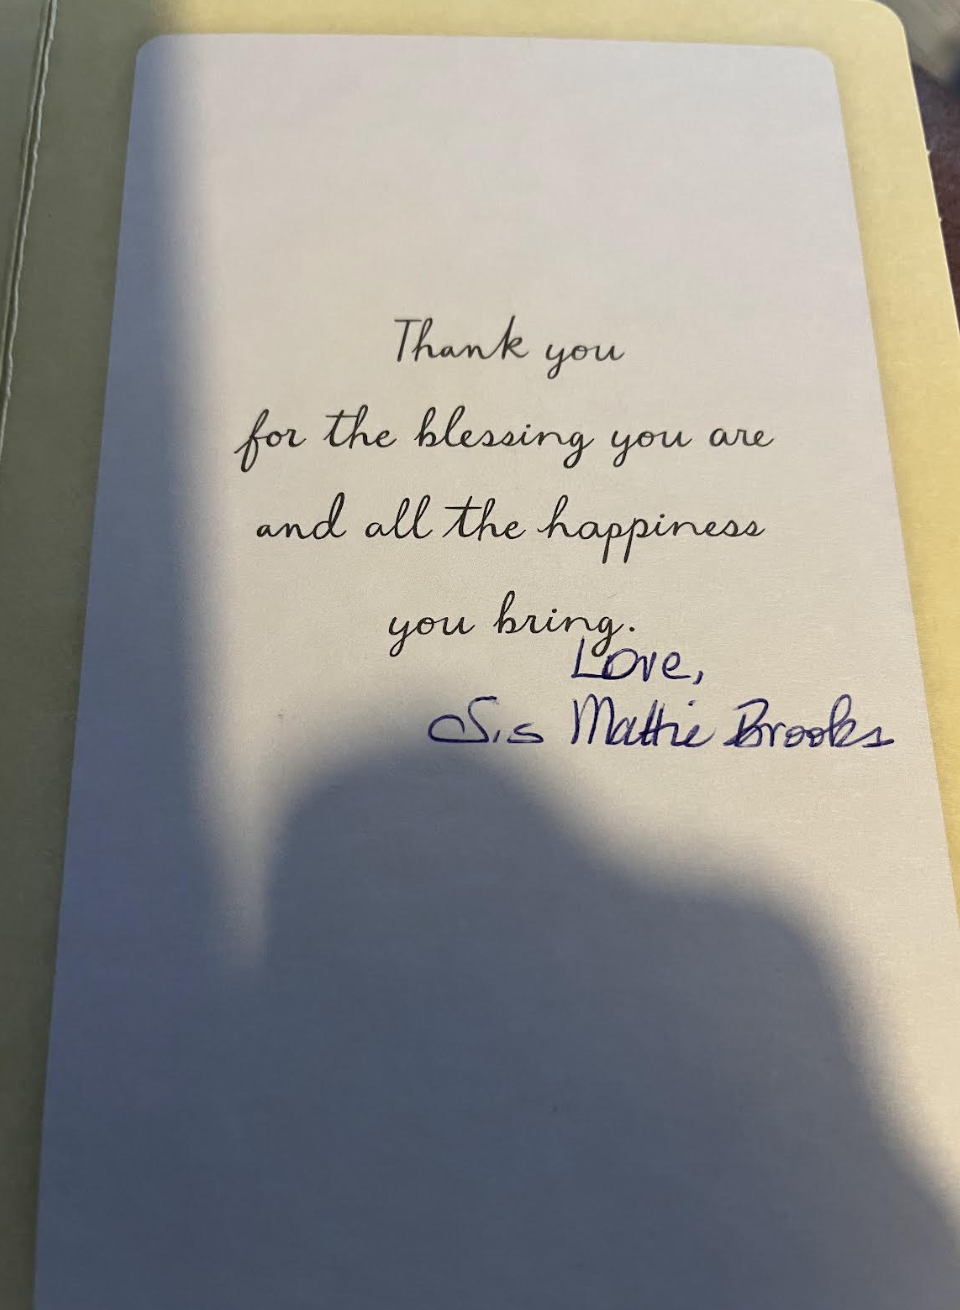 Thank you
for the blessing you are
and all the happiness
you bring.
Love,
Sis Mattie Brooks